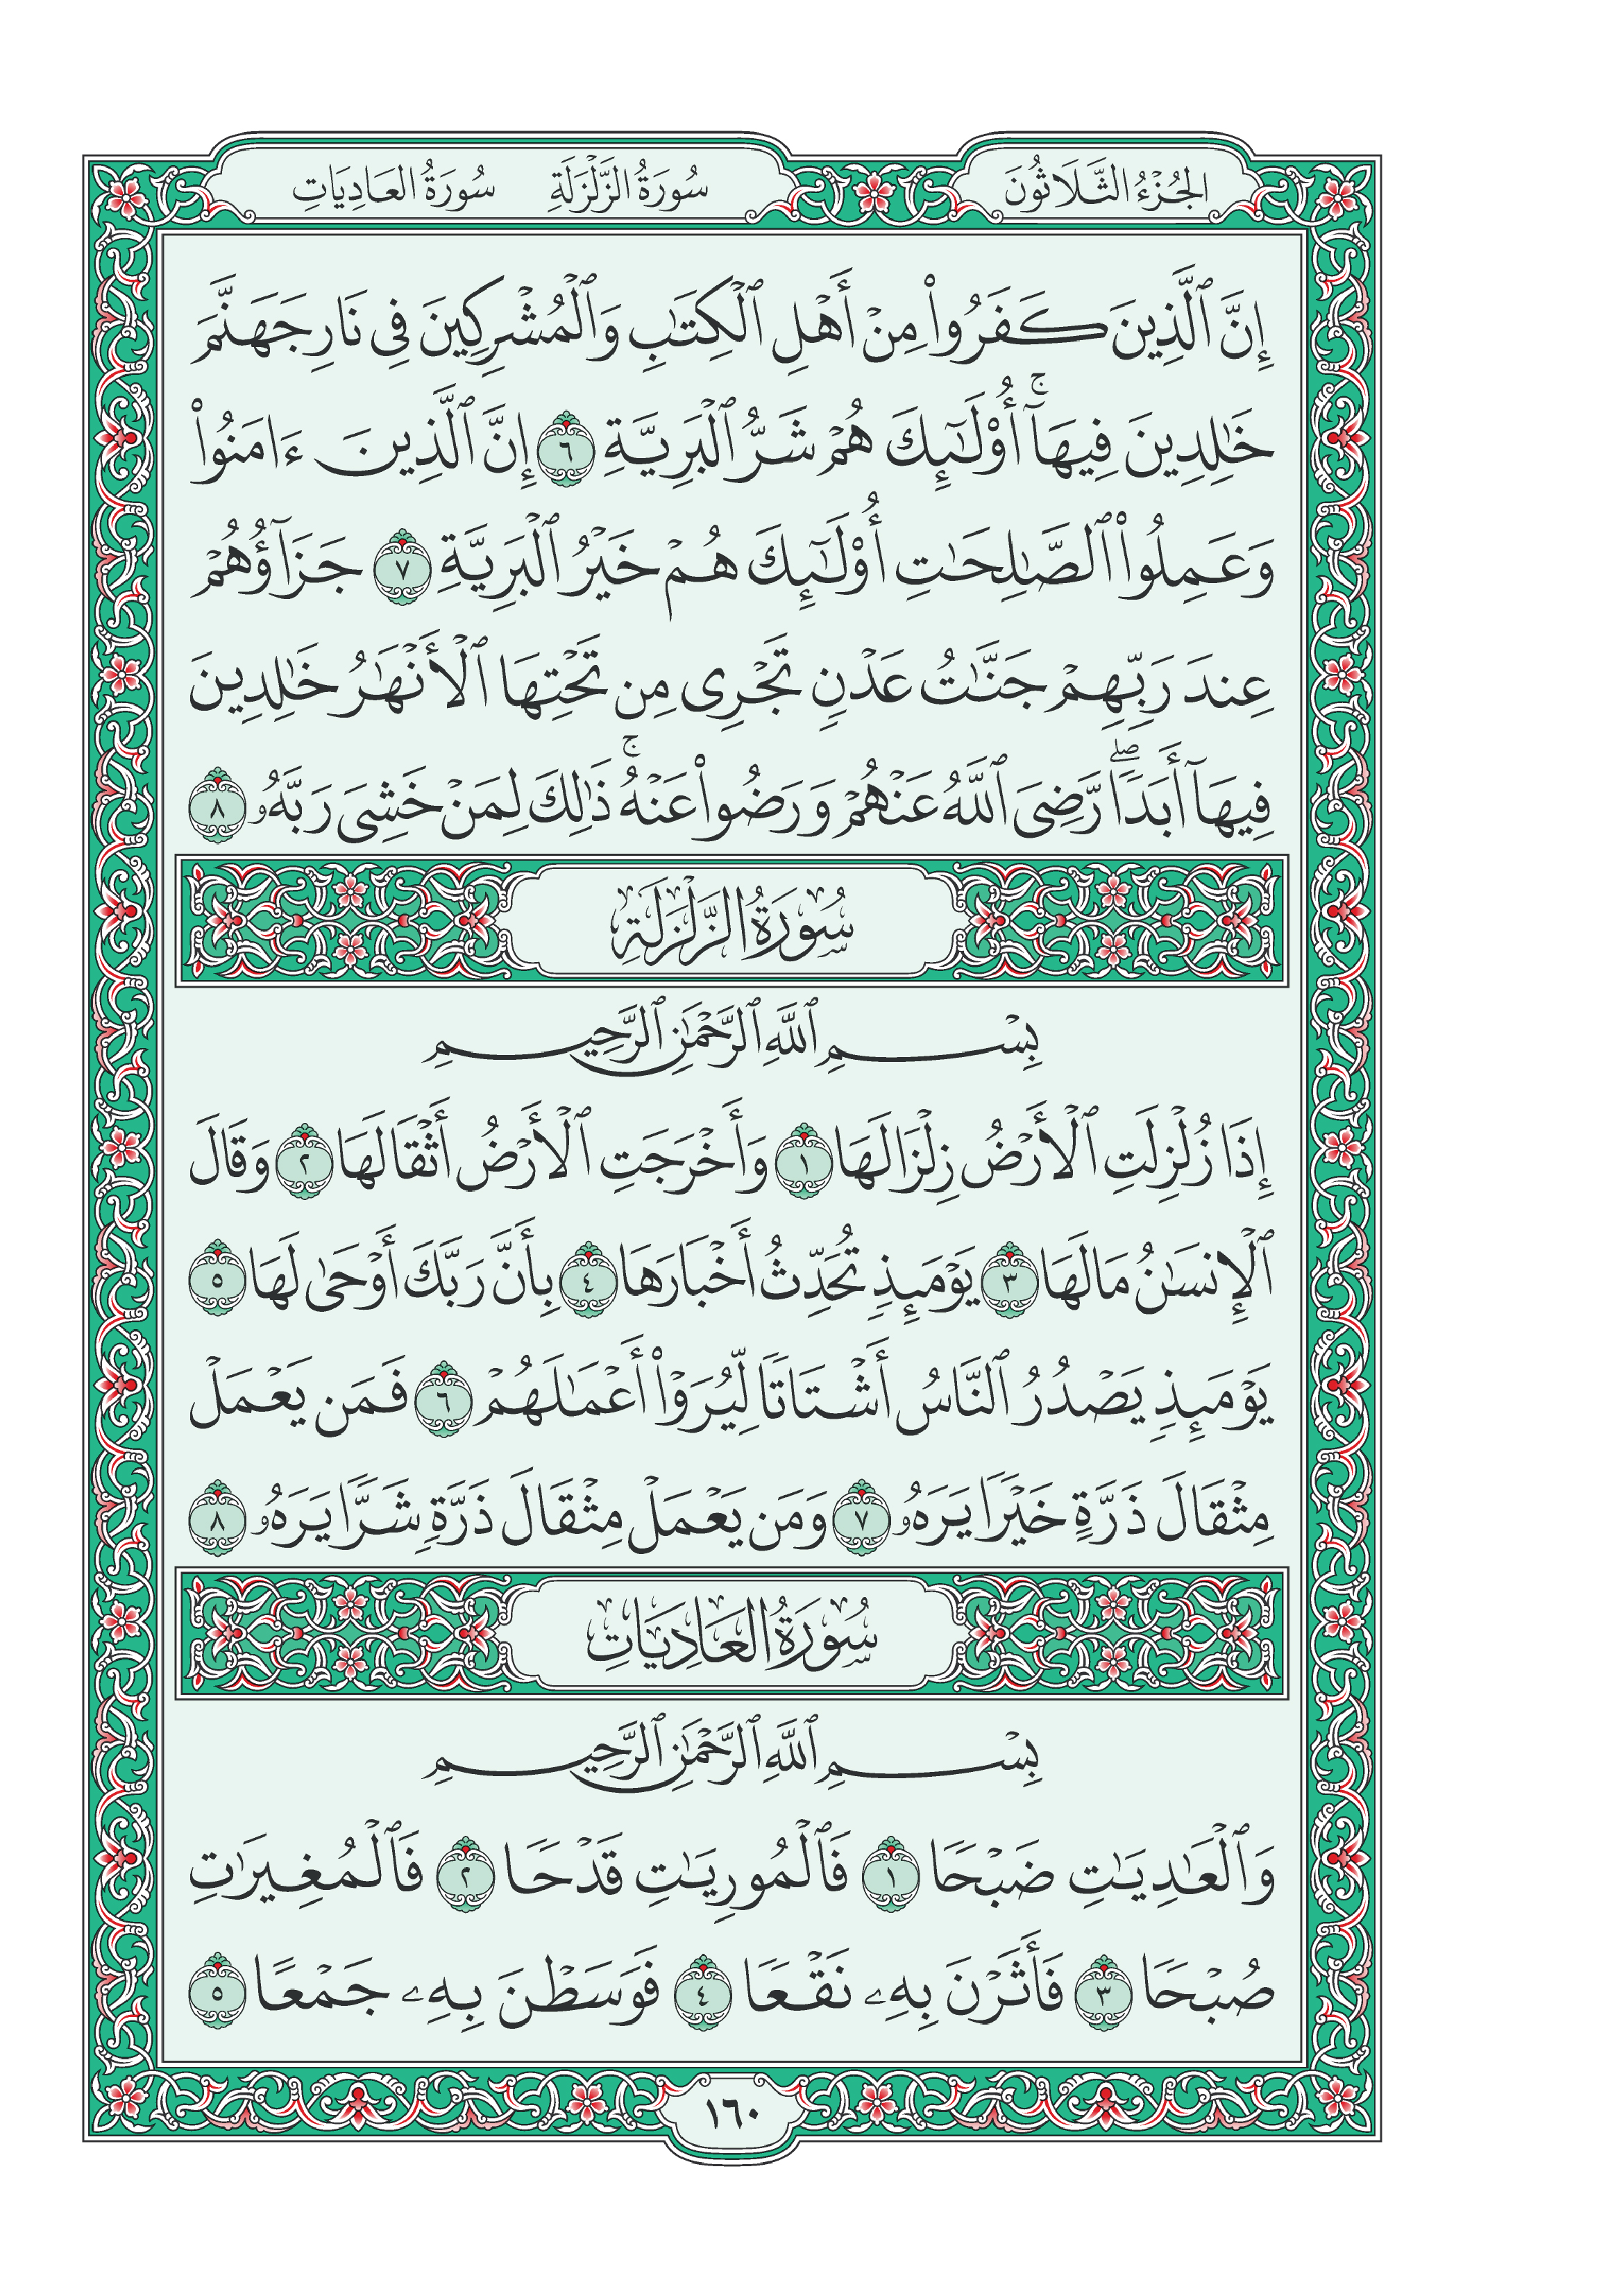 الجُزْءُ الثَّلَاثُونَ سُورَةُ الزَّلْزَلَةِ سُورَةُ العَادِيَاتِ
إِنَّ ٱلَّذِينَ كَفَرُوا۟ مِنْ أَهْلِ ٱلْكِتَـٰبِ وَٱلْمُشْرِكِينَ فِى نَارِ جَهَنَّمَ
خَـٰلِدِينَ فِيهَآ ۚ أُو۟لَـٰٓئِكَ هُمْ شَرُّ ٱلْبَرِيَّةِ ٦ إِنَّ ٱلَّذِينَ ءَامَنُوا۟
وَعَمِلُوا۟ ٱلصَّـٰلِحَـٰتِ أُو۟لَـٰٓئِكَ هُمْ خَيْرُ ٱلْبَرِيَّةِ ٧ جَزَآؤُهُمْ
عِندَ رَبِّهِمْ جَنَّـٰتُ عَدْنٍ تَجْرِى مِن تَحْتِهَا ٱلْأَنْهَـٰرُ خَـٰلِدِينَ
فِيهَآ أَبَدًا ۖ رَّضِىَ ٱللَّهُ عَنْهُمْ وَرَضُوا۟ عَنْهُ ۚ ذَٰلِكَ لِمَنْ خَشِىَ رَبَّهُۥ ٨
سُورَةُ الزَّلْزَلَةِ
بِسْمِ ٱللَّهِ ٱلرَّحْمَـٰنِ ٱلرَّحِيمِ
إِذَا زُلْزِلَتِ ٱلْأَرْضُ زِلْزَالَهَا ١ وَأَخْرَجَتِ ٱلْأَرْضُ أَثْقَالَهَا ٢ وَقَالَ
ٱلْإِنسَـٰنُ مَا لَهَا ٣ يَوْمَئِذٍ تُحَدِّثُ أَخْبَارَهَا ٤ بِأَنَّ رَبَّكَ أَوْحَىٰ لَهَا ٥
يَوْمَئِذٍ يَصْدُرُ ٱلنَّاسُ أَشْتَاتًا لِّيُرَوْا۟ أَعْمَـٰلَهُمْ ٦ فَمَن يَعْمَلْ
مِثْقَالَ ذَرَّةٍ خَيْرًا يَرَهُۥ ٧ وَمَن يَعْمَلْ مِثْقَالَ ذَرَّةٍ شَرًّا يَرَهُۥ ٨
سُورَةُ العَادِيَاتِ
بِسْمِ ٱللَّهِ ٱلرَّحْمَـٰنِ ٱلرَّحِيمِ
وَٱلْعَـٰدِيَـٰتِ ضَبْحًا ١ فَٱلْمُورِيَـٰتِ قَدْحًا ٢ فَٱلْمُغِيرَٰتِ
صُبْحًا ٣ فَأَثَرْنَ بِهِۦ نَقْعًا ٤ فَوَسَطْنَ بِهِۦ جَمْعًا ٥
١٦٠